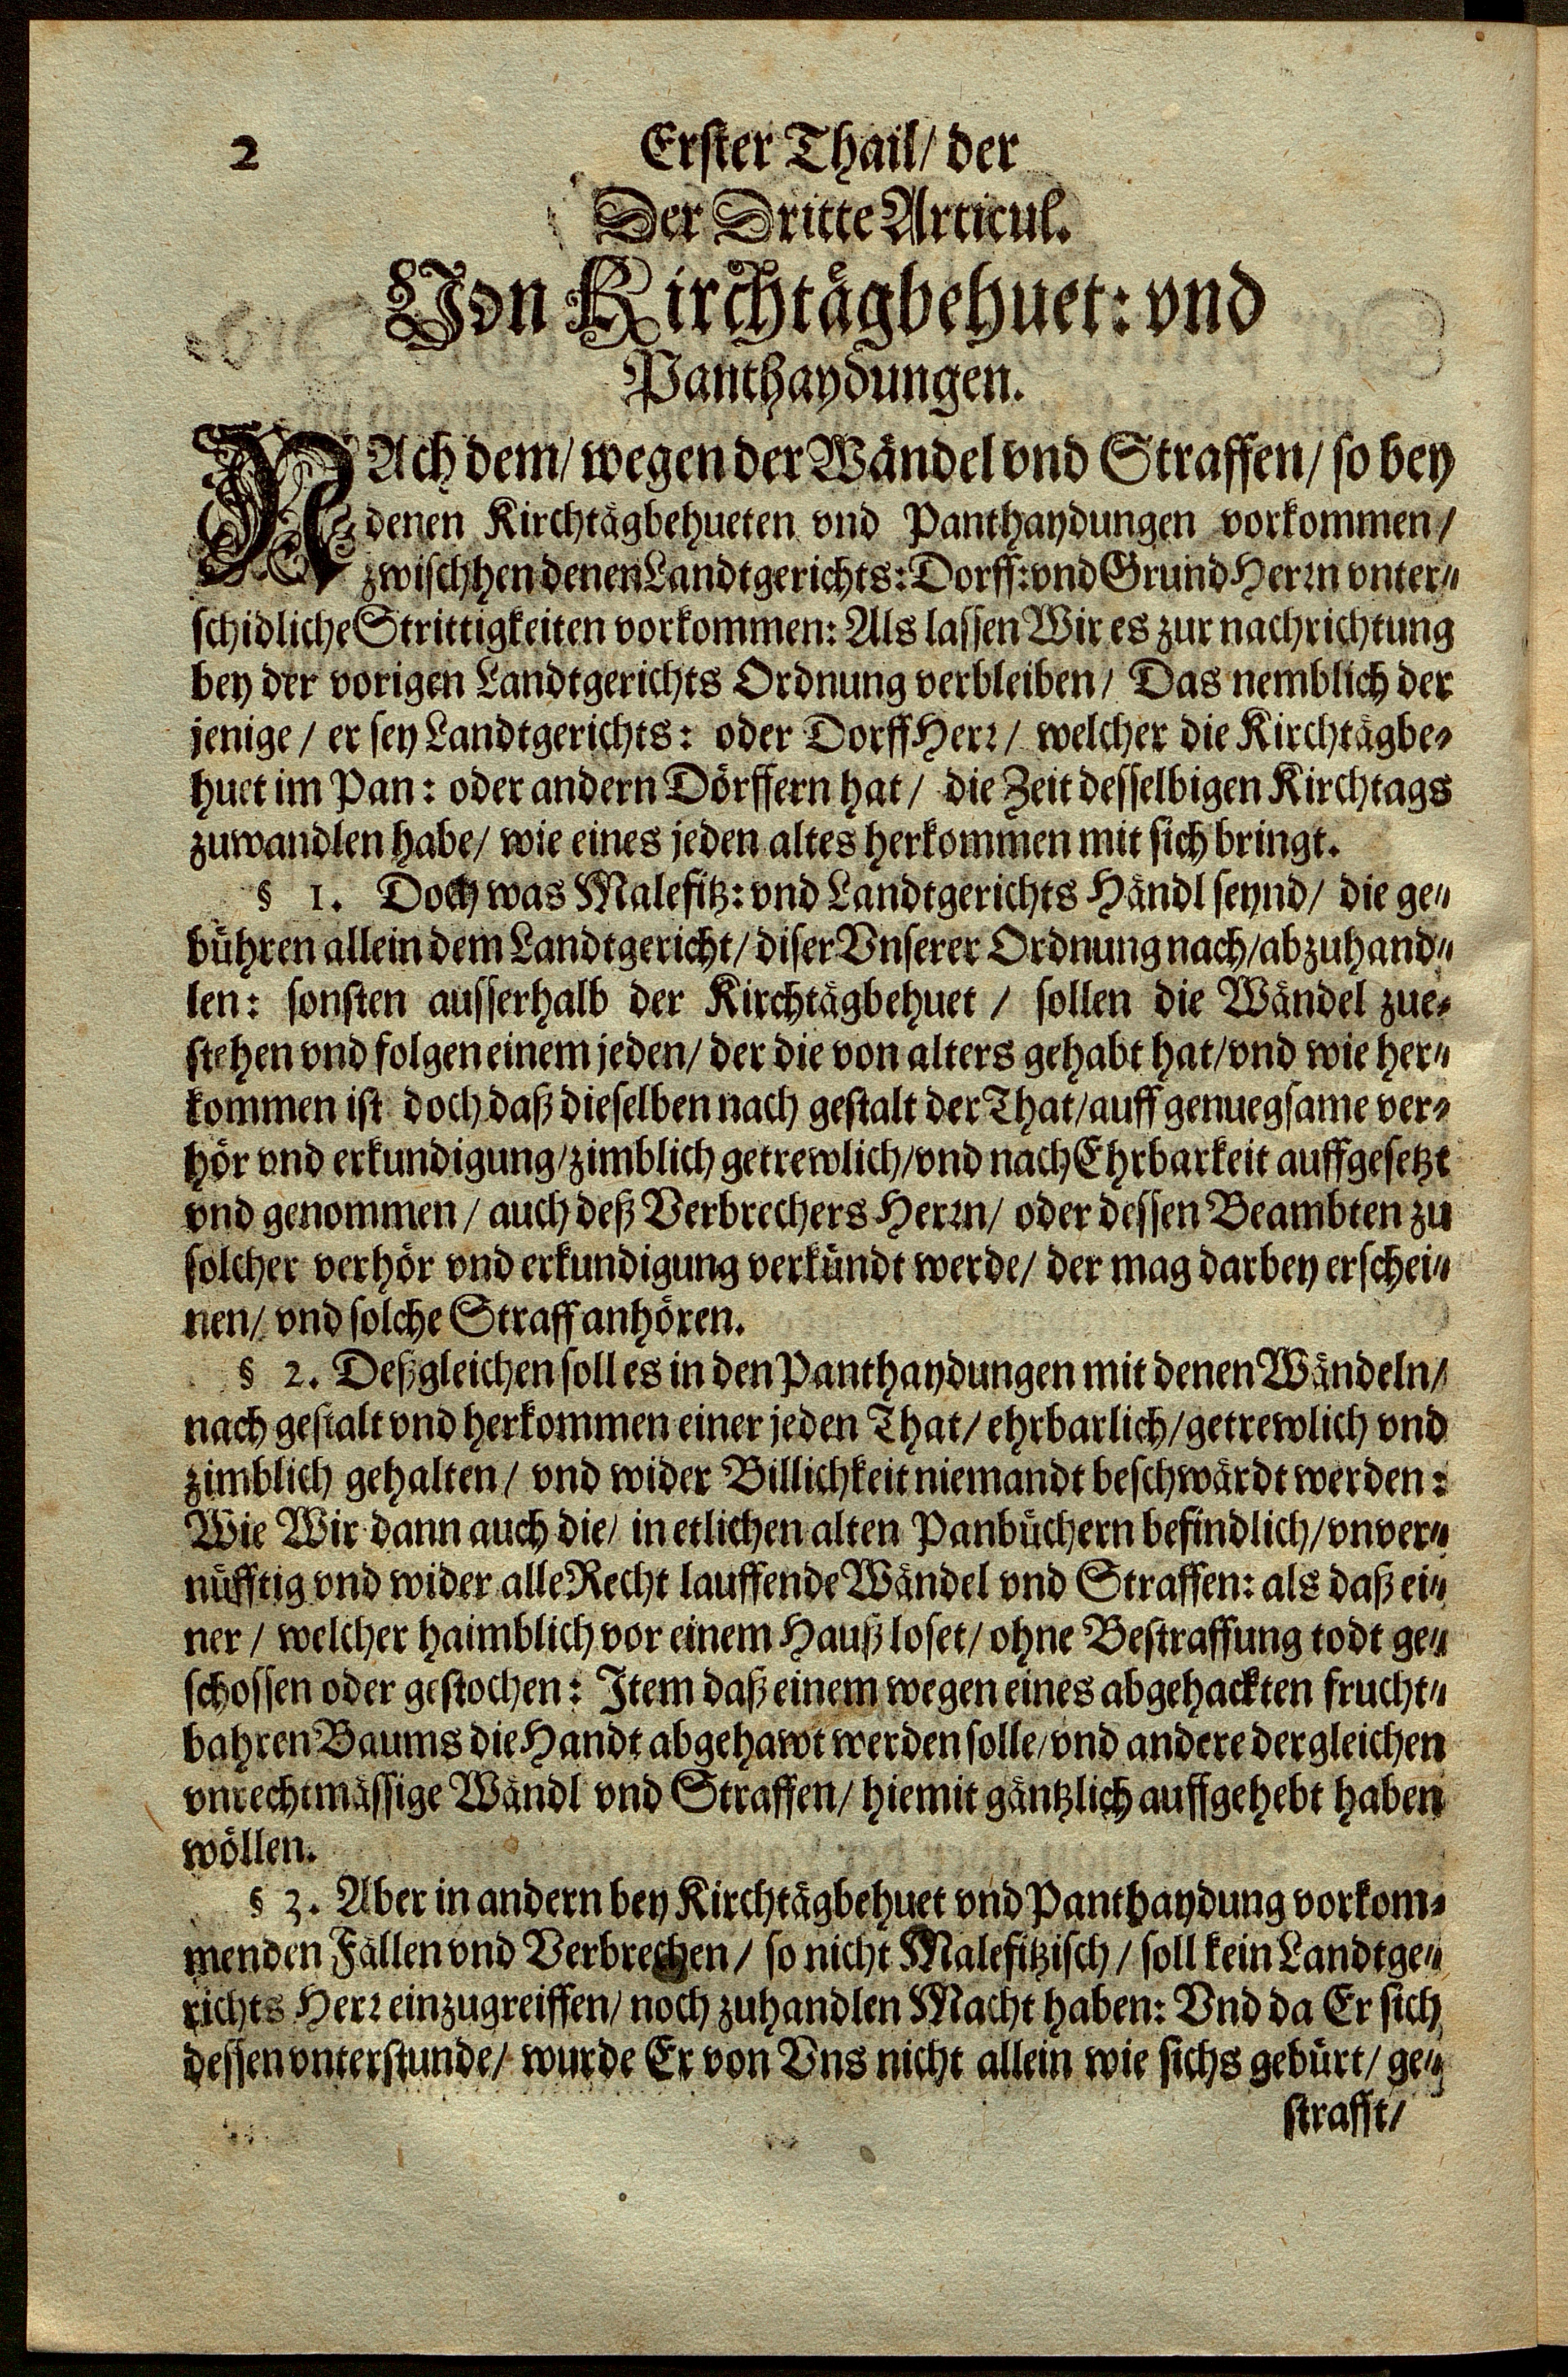 2 Erster Thail/ der
Der Dritte Articul.
Von Kirchtägbehuet: vnd
Panthaydungen.
NAch dem/ wegen der Wändel vnd Straffen/ so bey
denen Kirchtägbehueten vnd Panthaydungen vorkommen/
zwischhen denen Landtgerichts: Dorff: vnd Grund Herrn vnter-
schidliche Strittigkeiten vorkommen: Als lassen Wir es zur nachrichtung
bey der vorigen Landtgerichts Ordnung verbleiben/ Das nemblich der
jenige/ er sey Landtgerichts: oder Dorff Herr/ welcher die Kirchtägbe-
huet im Pan: oder andern Dörffern hat/ die Zeit desselbigen Kirchtags
zuwandlen habe/ wie eines jeden altes herkommen mit sich bringt.
§ 1. Doch was Malefitz: vnd Landtgerichts Händl seynd/ die ge-
bühren allein dem Landtgericht/ diser Vnserer Ordnung nach/ abzuhand-
len: sonsten ausserhalb der Kirchtägbehuet / sollen die Wändel zue-
stehen vnd folgen einem jeden/ der die von alters gehabt hat/ vnd wie her-
kommen ist doch daß dieselben nach gestalt der That/ auff genuegsame ver-
hör vnd erkundigung/ zimblich getrewlich/ vnd nach Ehrbarkeit auffgesetzt
vnd genommen/ auch deß Verbrechers Herrn/ oder dessen Beambten zu
solcher verhör vnd erkundigung verkündt werde/ der mag darbey erschei-
nen/ vnd solche Straff anhören.
§ 2. Deßgleichen soll es in den Panthaydungen mit denen Wändeln/
nach gestalt vnd herkommen einer jeden That/ ehrbarlich/ getrewlich vnd
zimblich gehalten/ vnd wider Billichkeit niemandt beschwärdt werden:
Wie Wir dann auch die/ in etlichen alten Panbüchern befindlich/ vnver-
nüfftig vnd wider alle Recht lauffende Wändel vnd Straffen: als daß ei-
ner/ welcher haimblich vor einem Hauß loset/ ohne Bestraffung todt ge-
schossen oder gestochen: Item daß einem wegen eines abgehackten frucht-
bahren Baums die Handt abgehawt werden solle/ vnd andere dergleichen
vnrechtmässige Wändl vnd Straffen/ hiemit gäntzlich auffgehebt haben
wöllen.
§ 3. Aber in andern bey Kirchtägbehuet vnd Panthaydung vorkom-
menden Fällen vnd Verbrechen/ so nicht Malefitzisch/ soll kein Landtge-
richts Herr einzugreiffen/ noch zuhandlen Macht haben: Vnd da Er sich
dessen vnterstunde/ wurde Er von Vns nicht allein wie sichs gebürt/ ge-
strafft/